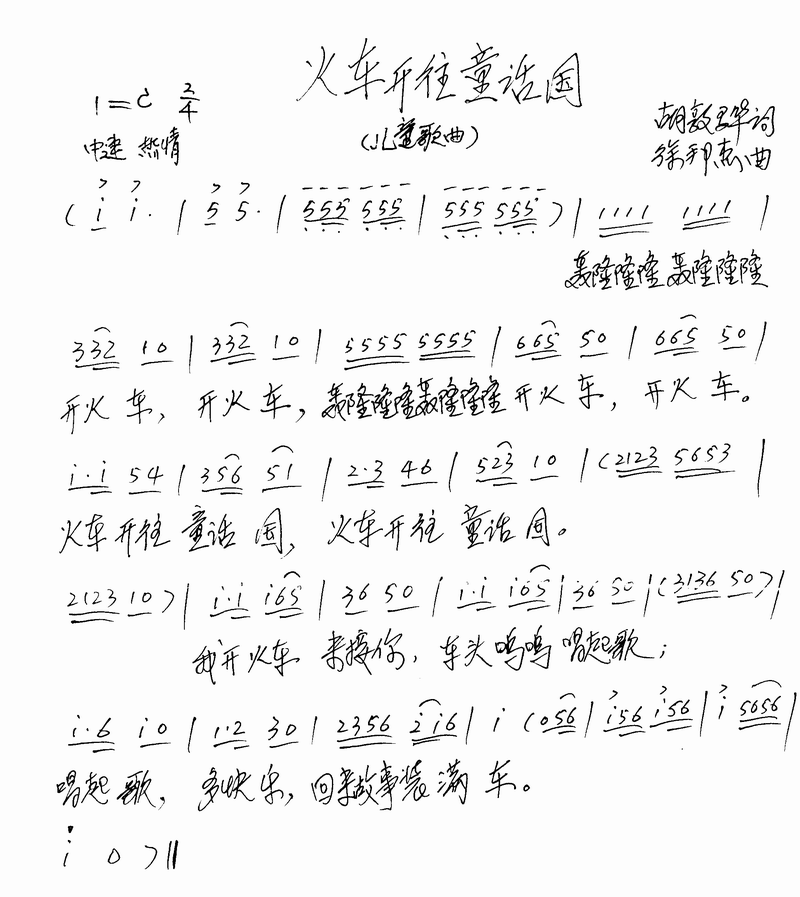 火车开往童话国
1=C 2/4
(儿童歌曲)
中速 热情
胡敦骅词
徐邦杰曲
( i i· | 5 5· | 555 555 | 555 555 ) | 1111 1111 |
轰隆隆隆 轰隆隆隆
332 10 | 332 10 | 5555 5555 | 665 50 | 665 50 |
开火 车, 开火 车, 轰隆隆隆轰隆隆隆 开火 车, 开火 车。
i·i 54 | 356 51 | 2·3 46 | 523 10 | (2123 5653 |
火车 开往 童话 国, 火车 开往 童话 国。
2123 10 ) | i·i i65 | 36 50 | i·i i65 | 36 50 | (3136 50 ) |
我开 火车 来接你, 车头 呜呜 唱起歌;
i·6 i0 | 1·2 30 | 2356 2i6 | i (056 | i56 i56 | i 5656 |
唱起 歌, 多快 乐, 回来故事装满 车。
i 0 ) ||